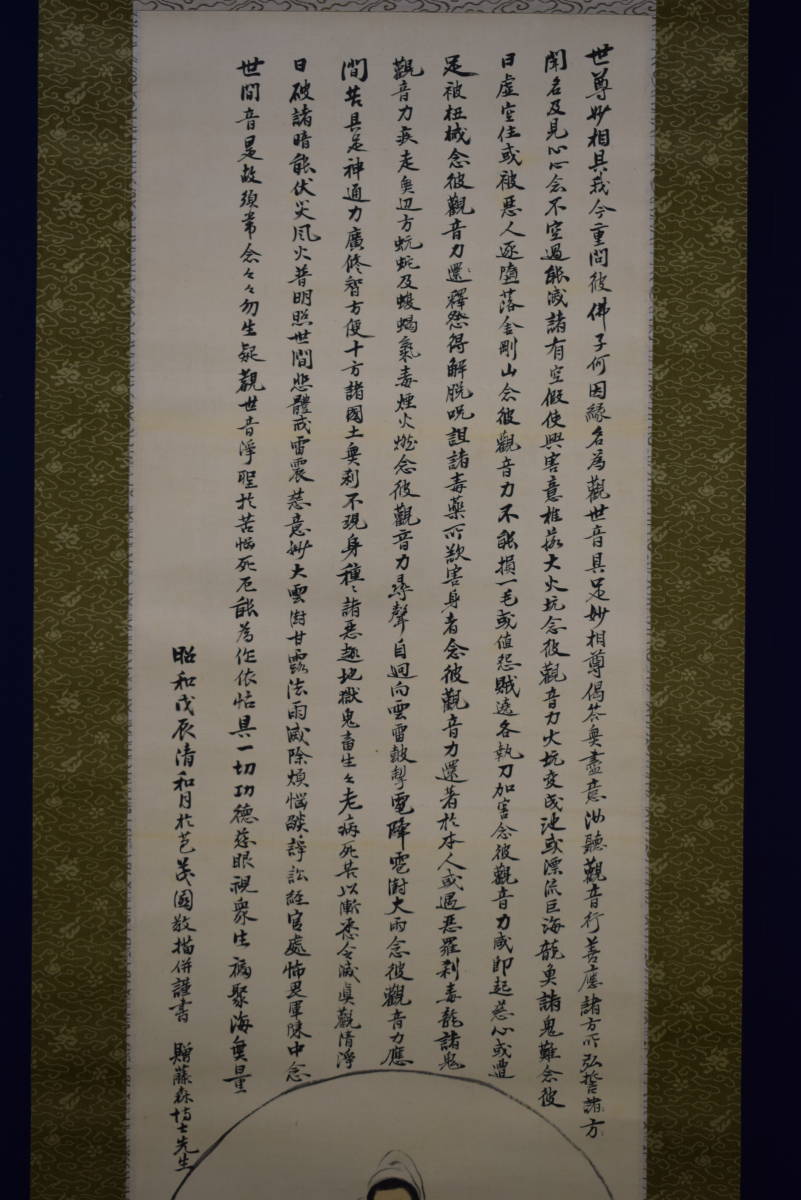 世尊妙相具我今重問彼佛子何因緣名為觀世音具足妙相尊偈答無盡意汝聽觀音行善應諸方所弘誓諸方
聞名及見心心念不空過能滅諸有空假使興害意推落大火坑念彼觀音力火坑變成池或漂流巨海龍魚諸鬼難念彼
日虛空住或被惡人逐墮落金剛山念彼觀音力不能損一毛或值怨賊遶各執刀加害念彼觀音力咸即起慈心或遭
足被杻械念彼觀音力還釋然得解脫呪詛諸毒藥所欲害身者念彼觀音力還著於本人或遇惡羅剎毒龍諸鬼
觀音力疾走無辺方蚖蛇及蝮蝎氣毒煙火燃念彼觀音力尋聲自迴向雲雷鼓掣電降雹澍大雨念彼觀音力應
間苦具足神通力廣修智方便十方諸國土無剎不現身種〻諸惡趣地獄鬼畜生々老病死苦以漸悉令滅真觀清淨
日破諸暗能伏災風火普明照世間悲體戒雷震慈意妙大雲澍甘露法雨滅除煩惱燄諍訟經官處怖畏軍陳中念
世間音是故須常念々々勿生疑觀世音淨聖於苦惱死厄能為作依怙具一切功德慈眼視眾生福聚海無量
昭和戊辰清和月於園敬描併謹書 贈藤森先生